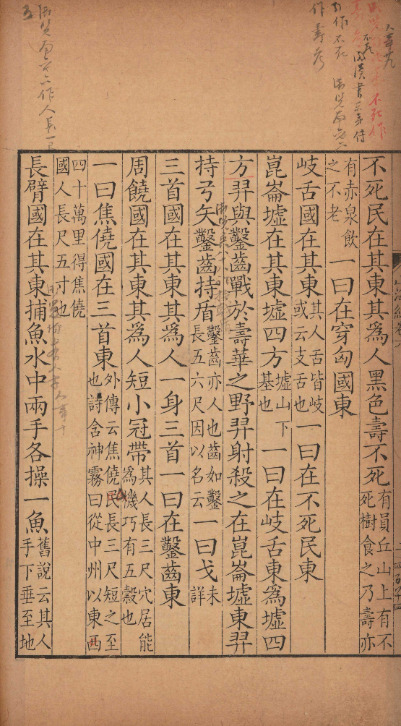 不死民在其東其為人黑色壽不死有員丘山上有不死樹食之乃壽亦
有赤泉飲之不老一曰在穿匈國東
岐舌國在其東其人舌皆岐或云支舌也一曰在不死民東
崑崙墟在其東墟四方墟山下基也一曰在岐舌東為墟四
方羿與鑿齒戰於壽華之野羿射殺之在崑崙墟東羿
持弓矢鑿齒持盾鑿齒亦人也齒如鑿長五六尺因以名云一曰戈未詳
三首國在其東其為人一身三首一曰在鑿齒東
周饒國在其東其為人短小冠帶其人長三尺穴居能為機巧有五穀也
一曰焦僥國在三首東外傳云焦僥民長三尺短之至也詩含神霧曰從中州以東西
四十萬里得焦僥國人長尺五寸也
長臂國在其東捕魚水中兩手各操一魚舊說云其人手下垂至地